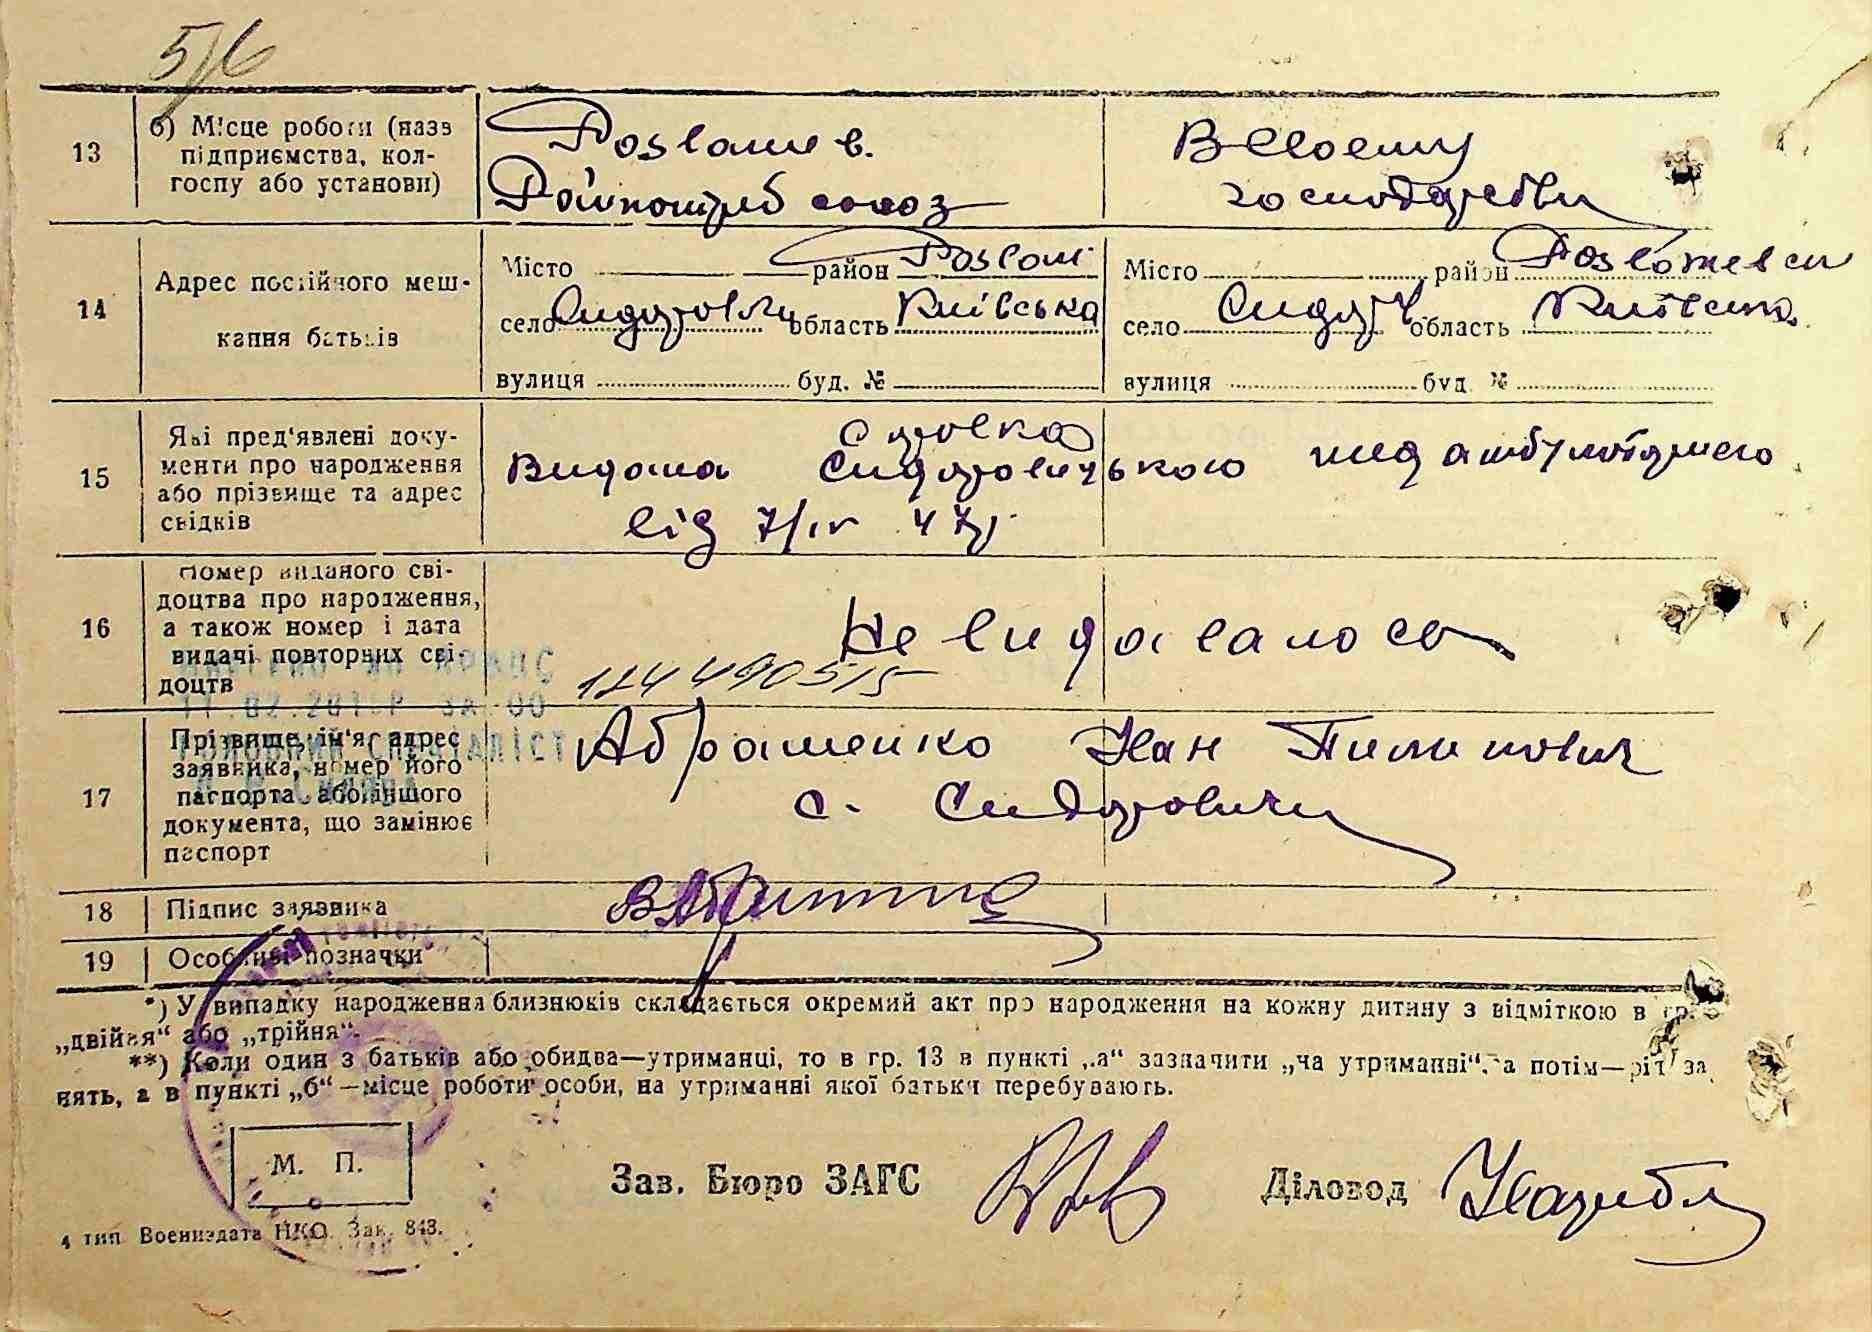 5/6
13
б) Місце роботи (назв
підприємства, кол-
госпу або установи)
Розваж ів.
Райпотреб союз
В своєму
господарстві
14
Адрес постійного меш-
кання батьків
Місто район Розваж
село Сидоровичі область Київська
вулиця буд. №
Місто район Розважевськ
село Сидор область Київська
вулиця буд. №
15
Які пред'явлені доку-
менти про народження
або прізвище та адрес
свідків
Справка
Видана Сидоровичською мед амбулаторією
від 7/IV 47р
16
Номер виданого сві-
доцтва про народження,
а також номер і дата
видачі повторних сві-
доцтв
Не видавалось
124490515
17
Прізвище, ім'я, адрес
заявника, номер його
паспорта або іншого
документа, що замінює
паспорт
Абраменко Іван Пилипович
с. Сидоровичи
18
Підпис заявника
19
Особливі позначки
*) У випадку народження близнюків складається окремий акт про народження на кожну дитину з відміткою в гр. 6
„двійня“ або „трійня“.
**) Коли один з батьків або обидва—утриманці, то в гр. 13 в пункті „а“ зазначити „на утриманні“, а потім—рід за
нять, а в пункті „б“—місце роботи особи, на утриманні якої батьки перебувають.
М. П.
Зав. Бюро ЗАГС
Діловод
4 тип. Воениздата НКО. Зак. 843.